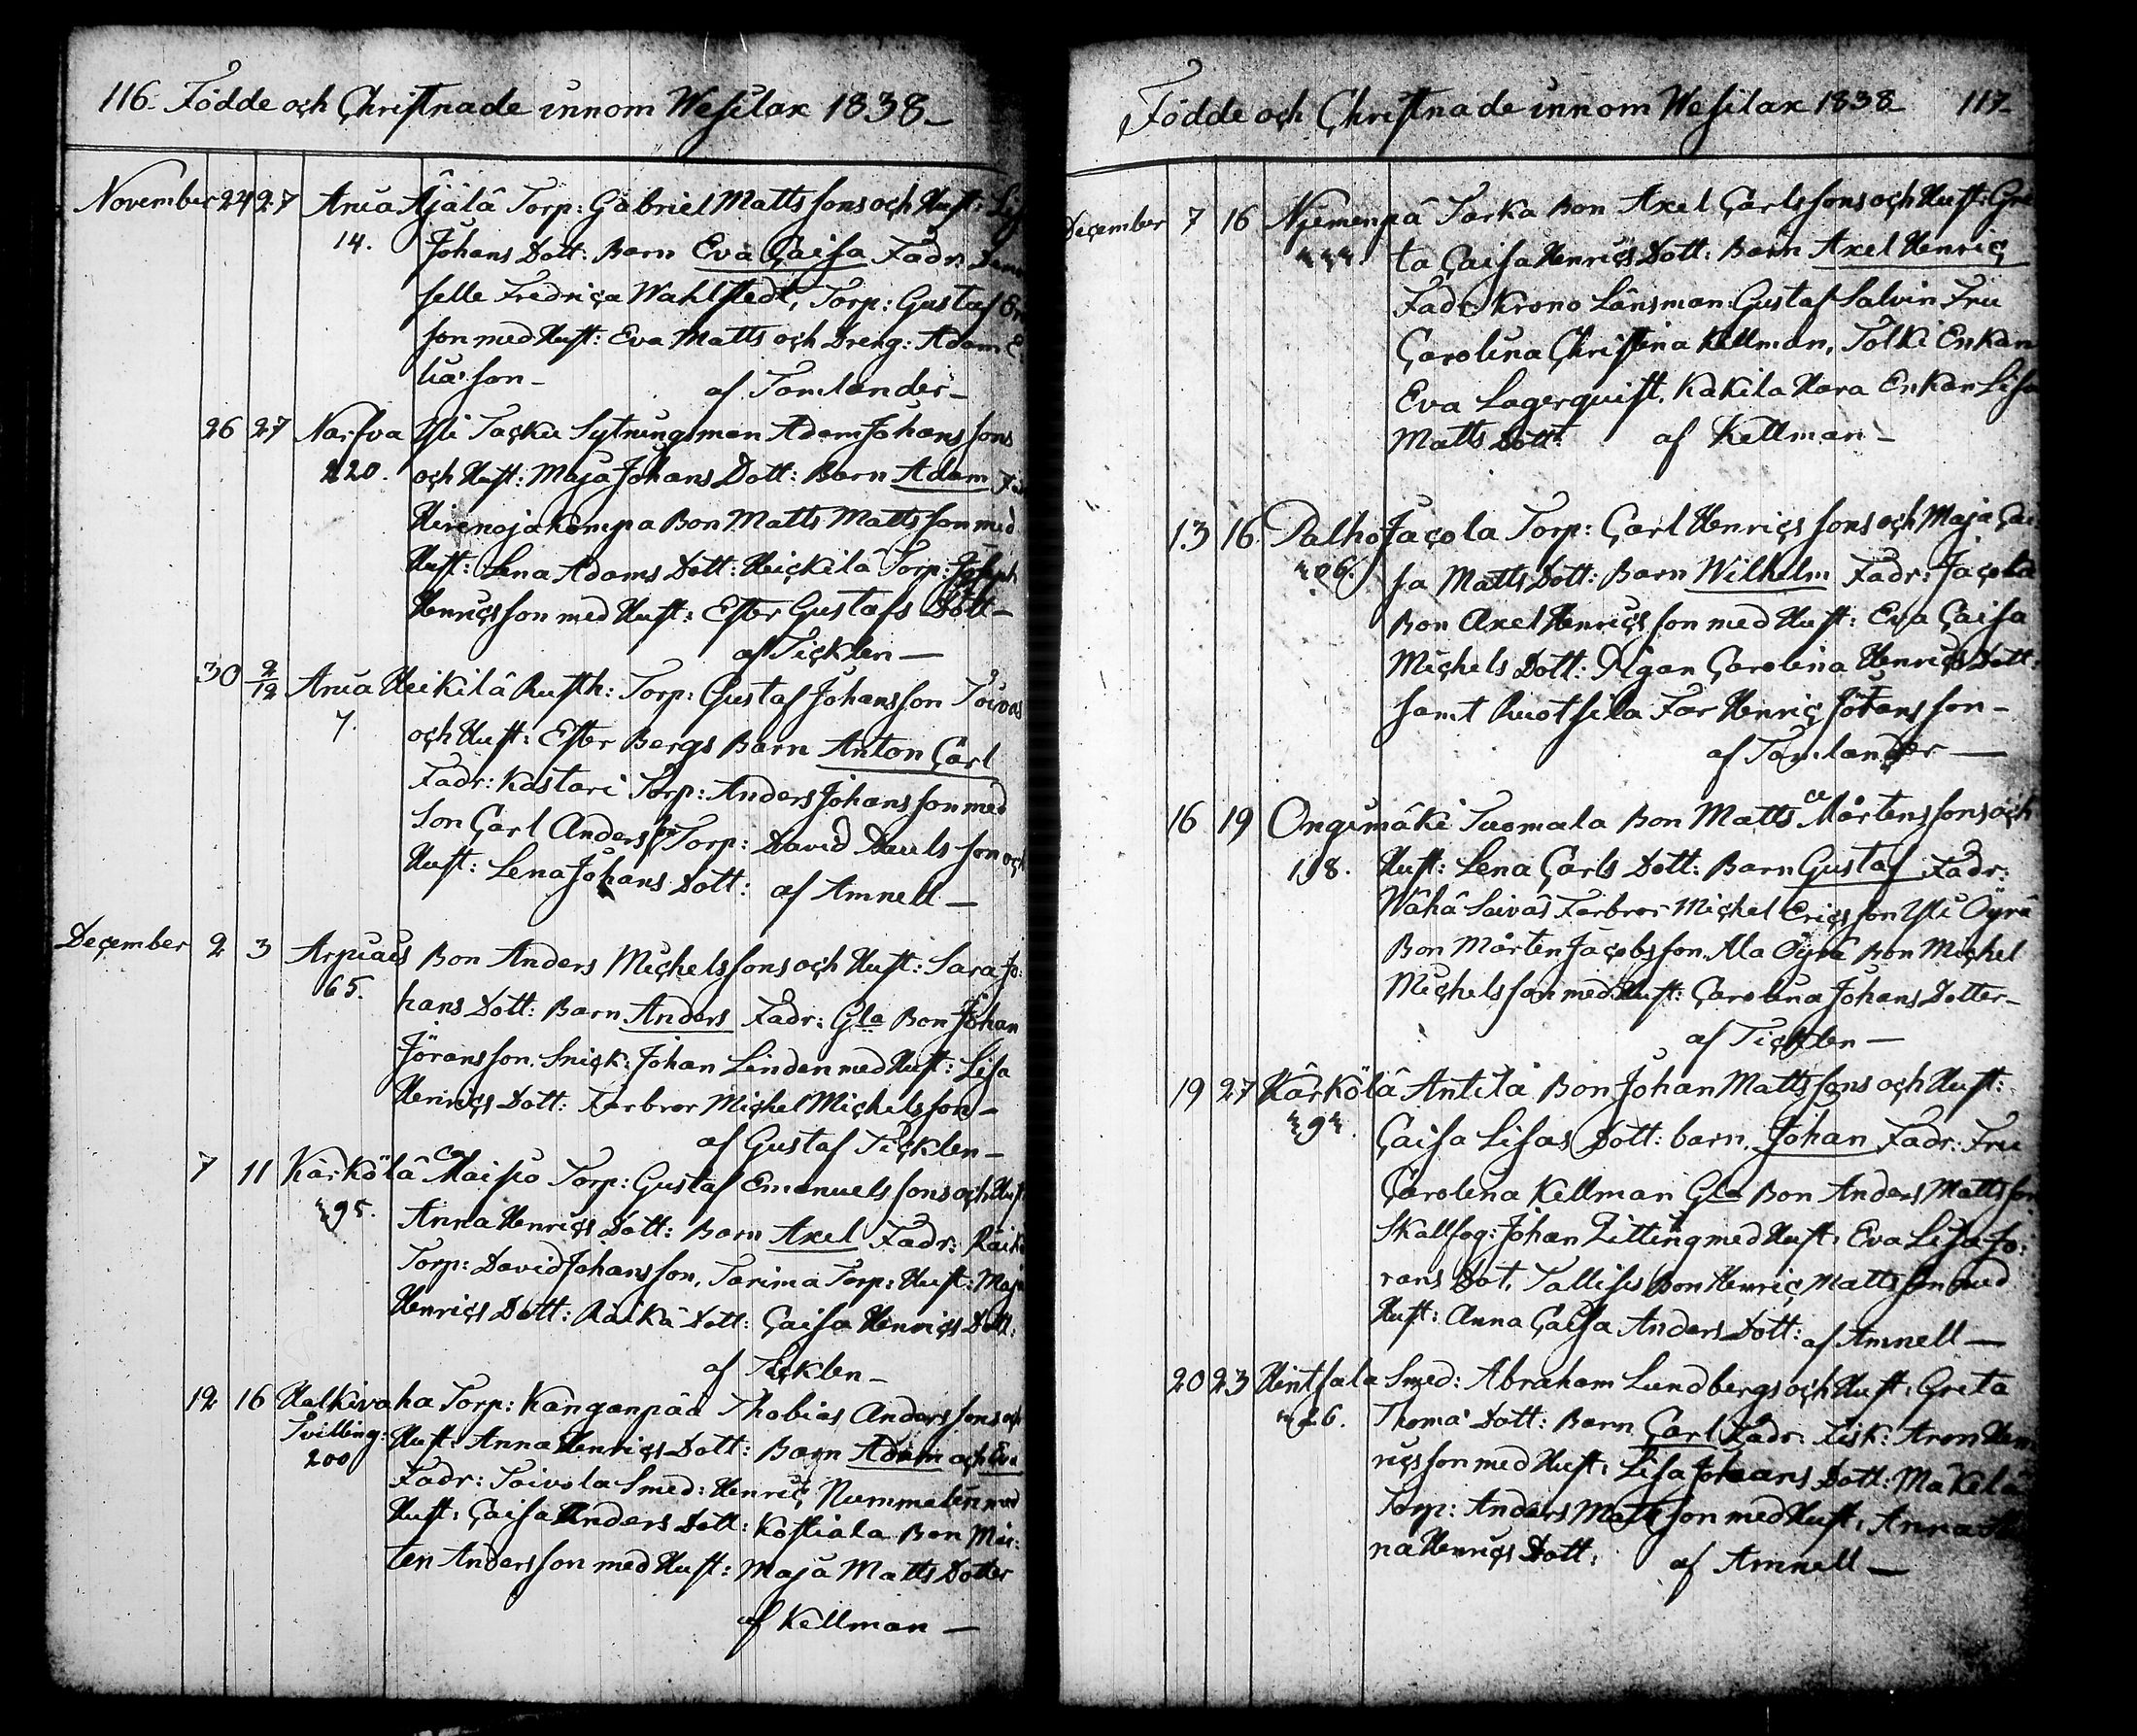 116. Födde och Christnade innom Wesilax 1838
November 24 27 Ania Äjälä Torp: Gabriel Matts sons och Hust: Lis
14. Johans Dott: Barn Eva Caisa Fadr:
selle Fredrica Wahlstedt, Torp: Gustaf
son med Hust: Eva Matts och Dreng: Adam E
lia son af Tomlander
26 27 Narfva Yli Tacku Sytningsman Adam Johans sons
220. och Hust: Maja Johans Dott: Barn Adam
Hirenoja Bon Matts Matts son med
Hust: Lena Adams Dott: Heickilä Torp: Joseph
Henrics son med Hust: Ester Gustafs Dott
af Ticklen
30 2/12 Ania Heikilä Rusth: Torp: Gustaf Johansson Toivos
7. och Hust: Ester Bergs Barn Anton Carl
Fadr: Kastari Torp: Anders Johans son med
Son Carl Anders son Torp: David Pauls son och
Hust: Lena Johans Dott: af Amnell
December 2 3 Arpiais Bon Anders Michels sons och Hust: Sara Jo:
65. hans Dott: Barn Anders Fadr: Gla Bon Johan
Jöransson. Snick: Johan Linden med Hust: Lisa
Henrics Dott: Farbror Michel Michels son
af Gustaf Ticklen
7 11 Kärkölä Maisio Torp: Gustaf Emanuels sons och Hust
295. Anna Henrics Dott: Barn Axel Fadr: Räikä
Torp: David Johans son, Tarima Torp: Hust: Maja
Henrics Dott: Räikä Dott: Caisa Henrics Dott:
af Ticklen
12 16 Halkivaha Torp: Kanganpää Thobias Anders sons och
Tvilling: Hust: Anna Henrics Dott: Barn Adam och Eva
200 Fadr: Toivola Smed: Henric Nummelin med
Hust: Caisa Anders Dott: Kostiala Bon Mår:
ten Anders son med Hust: Maja Matts Dotter
af Kellman
Födde och Christnade innom Wesilax 1838 117
December 7 16 Njemenpä Tarka Bon Axel Carls sons och Hust: Gre
ta Caisa Henrics Dott: Barn Axel Henric
Fadr: Krono Länsman Gustaf Salvin Fru
Carolina Christina Kellman, Tolki Enkan
Eva Lagerquist, Kakila Hara Enkan Lisa
Matts Dott: af Kellman
13 16 Palho Jacola Torp: Carl Henrics sons och Maja Cai
206. sa Matts Dott: Barn Wilhelm Fadr: Jacola
Bon Axel Henrics son med Hust: Eva Caisa
Michels Dott: Pigan Carolina Henrics Dott:
samt Ruotsila Far Henric Johans son
af Tomlander
16 19 Ongimäki Tuomala Bon Matts Mårtens sons och
118. Hust: Lena Carls Dott: Barn Gustaf Fadr:
Wähä Saiväs Farbror Michel Erics son Yli Öyrä
Bon Mårten Jacobs son. Ala Öyrä Bon Michel
Michels son med Hust: Carolina Johans Dotter
af Ticklen
19 27 Kärkölä Antila Bon Johan Matts sons och Hust:
Caisa Lisas Dott: barn Johan Fadr: Fru
Carolina Kellman Gla Bon Anders Matts son
Skallfog: Johan Zitting med Hust: Eva Lisa Jo:
rans Dot. Tallisis Bon Henric Matts son med
Hust: Anna Caisa Anders Dott: af Amnell
20 23 Hintsala Smed: Abraham Lundbergs och Hust: Greta
226. Thoma Dott: Barn Carl Fadr: Fisk: Aron Hen
rics son med Hust: Lisa Johans Dott: Mäkelä
Torp: Anders Matts son med Hust: Anna
na Henrics Dott: af Amnell